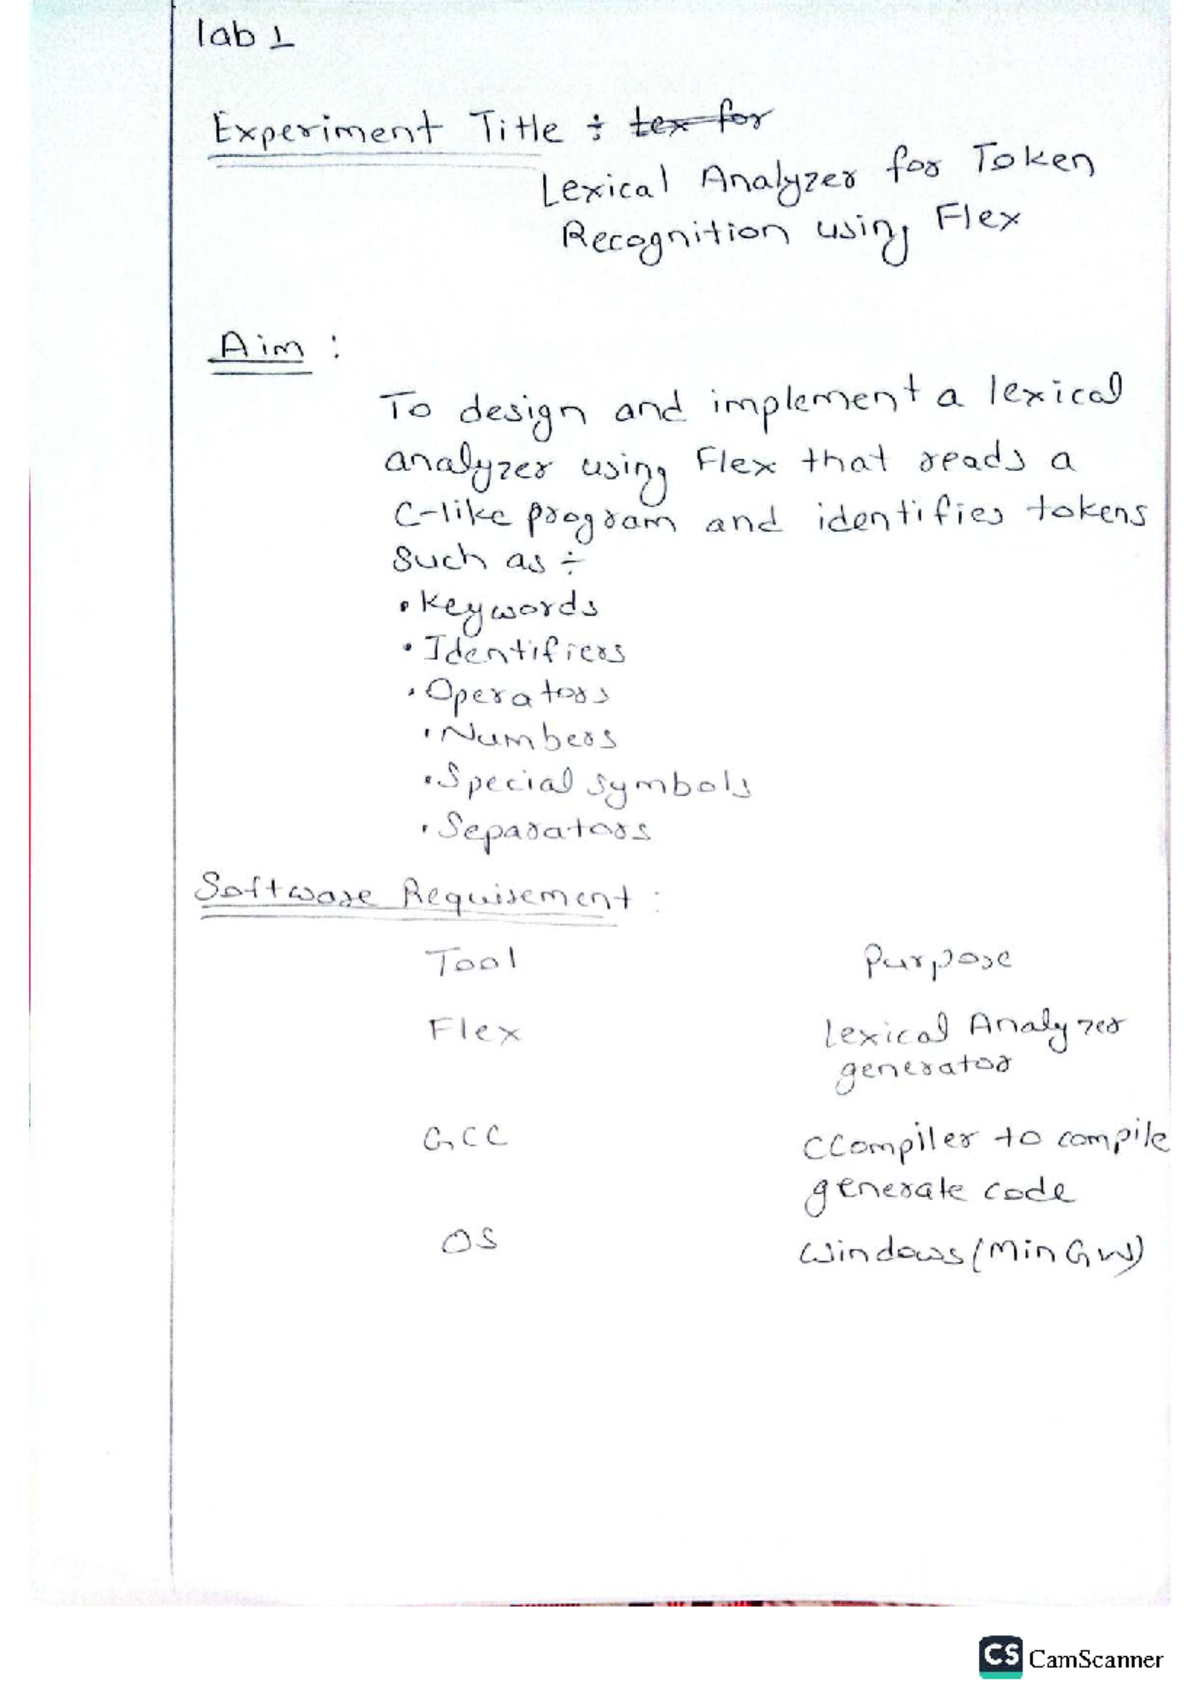 lab 1
Experiment Title ÷ tex for
Lexical Analyzer for Token
Recognition using Flex
Aim :
To design and implement a lexical
analyzer using Flex that reads a
C-like program and identifies tokens
Such as ÷
• Keywords
• Identifiers
• Operators
• Numbers
• Special symbols
• Separators
Software Requirement :
Tool Purpose
Flex Lexical Analyzer
generator
GCC CCompiler to compile
generate code
OS Windows (MinGW)
CS CamScanner